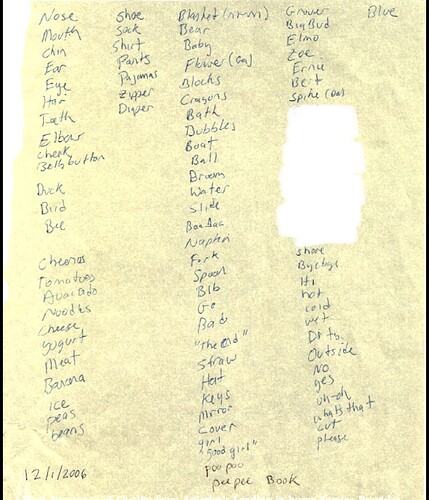 Nose
Mouth
Chin
Ear
Eye
Hair
Teeth
Elbow
cheek
Bellybutton
Duck
Bird
Bee
Cheerios
Tomatoes
Avocado
Noodles
Cheese
yogurt
Meat
Banana
Ice
peas
beans
12/1/2006
Shoe
Sock
Shirt
Pants
Pajamas
Zipper
Diaper
Blanket
Bear
Baby
Flower
Blocks
Crayons
Bath
Bubbles
Boat
Ball
Broom
Water
Slide
Napkin
Fork
Spoon
Bib
Go
"The End"
Straw
Hat
Keys
Mirror
Cover
girl
"good girl"
Poo poo
pee pee
Book
Grover
Big Bird
Elmo
Zoe
Ernie
Bert
Spike
Bye bye
Hi
hot
cold
wet
Outside
No
yes
uh-oh
whats that
please
Blue